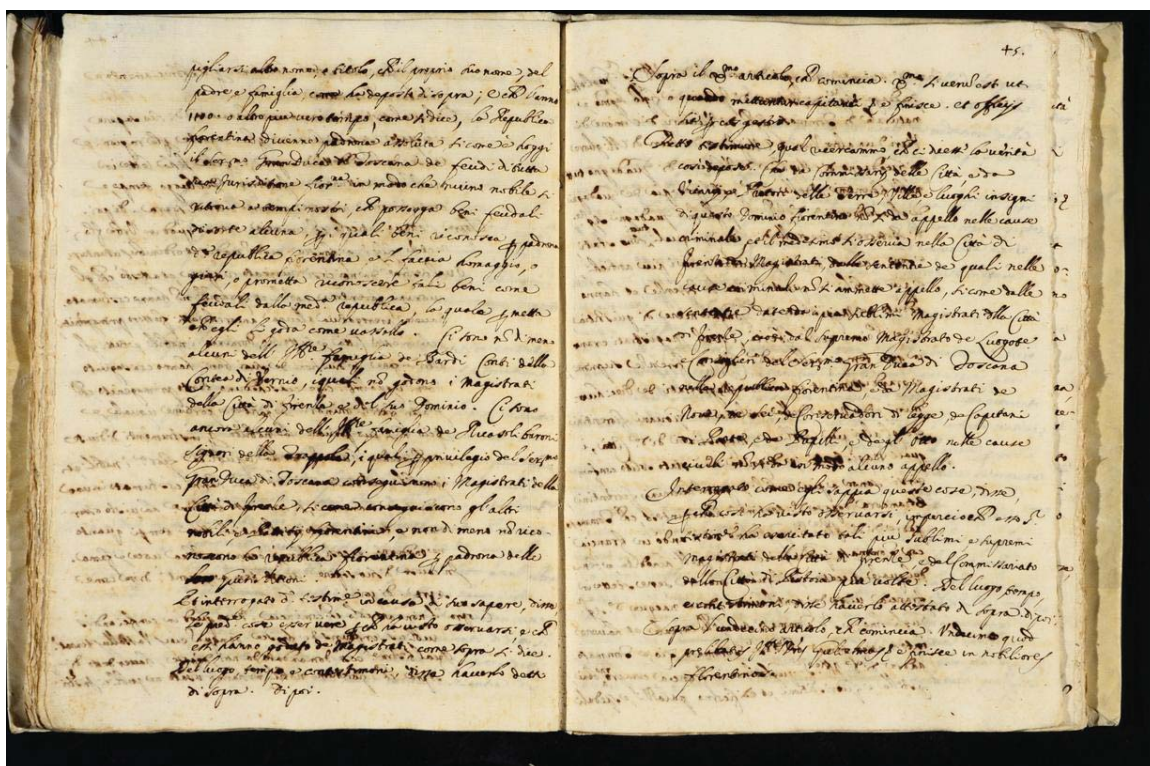 pigliarsi altro nome, e titolo, ch'il proprio suo nome, del
padre, e famiglia come ha deposto di sopra; e che l'anno
1100. o altro più vero tempo, come si dice, la Republica
fiorentina divenne padrona assoluta si come è hoggi
il Ser.mo Gran Duca di Toscana de feudi di tutta
giurisditione fior.na in modo che niuno nobile si
ritrova a tempi nostri, che possegga beni feudali
di sorte alcuna, per i quali beni riconosca per padrona
la republica fiorentina e li faccia homaggio, o
giuri, o prometta riconoscere tali beni come
feudali dalla med.a republica, la quale permetta
che egli li goda come vassallo. Ci sono nō di meno
alcuni dell' Ill.re famiglia de Bardi Conti della
Contea di Vernio, i quali nō godono i Magistrati
della Città di firenze, e del suo Dominio. Ci sono
ancora alcuni dell' Ill.re famiglia de Ricasoli baroni
Signori della Trappola, i quali per privilegio del Ser.mo
Gran Duca di Toscana conseguiscono i Magistrati della
Città di firenze si come conseguiscono gl'altri
nobili, fiorentini, e non di meno nō rico-
noscono la republica fiorentina per padrona delle
loro giurisditioni.
Et interrogato d. testim.o in causa di suo sapere, disse
le med. cose esser vere, per che ha visto osservarsi, e che
essi hanno goduto de Magistrati come sopra si dice.
Del luogo, tempo, e contestimoni, disse haverlo detto
di sopra. Dipoi.
45.
Sopra il X.mo articolo, che comincia. X.ma si verū est ut
quando mittuntur capitanei e finisce. et officijs
sic per eos gestis.
Detto testimone, qual veerissimo che ci detti la verità
così depose. Che da Commissarij delle Città e da
Vicarij, e Pretori delle Terre, Ville e luoghi insigni
di questo Dominio fiorentino nō si da appello nelle cause
criminali, et il medesimo si osserva nella Città di
firenze Magistrati, dalle sentenze de quali nelle
cause criminali nō si ammette appello, si come dalle
sentenze date da Magistrati della Città
di firenze, cioè dal supremo Magistrato de Luogote
e Consiglieri del Ser.mo Gran Duca di Toscana
nella republica fiorentina, e da Magistrati de
Nove, de Conservadori di legge, de Capitani
di Parte, e de Pupilli, e degl'Otto nelle cause
civili nō si da in modo alcuno appello.
Interrogato come egli sappia queste cose, disse
perche così ha visto osservarsi, imperciochè esso
ha esercitato tali più sublimi e supremi
Magistrati della città di firenze, e del Commissariato
della Città di Pistoia più volte. Del luogo, tempo,
e contestimoni disse haverlo attestato di sopra. dipoi.
Sopra l'undecimo articolo, che comincia. Undecimo quod
e finisce in nobiliores
florentinos.